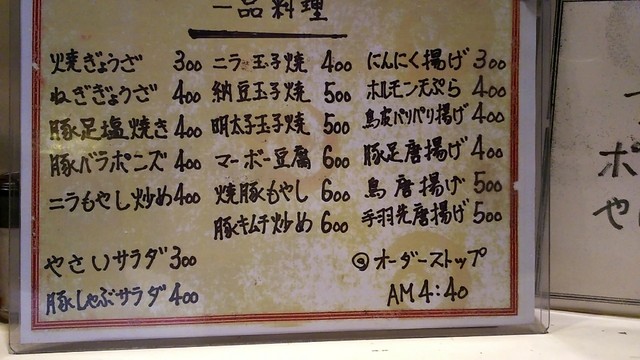 一品料理
焼ぎょうざ 300
ねぎぎょうざ 400
豚足塩焼き 400
豚バラポンズ 400
ニラもやし炒め 400
やさいサラダ 300
豚しゃぶサラダ 400
ニラ玉子焼 400
納豆玉子焼 500
明太子玉子焼 500
マーボー豆腐 600
焼豚もやし 600
豚キムチ炒め 600
にんにく揚げ 300
ホルモン天ぷら 400
鳥皮パリパリ揚げ 400
豚足唐揚げ 400
鳥唐揚げ 500
手羽先唐揚げ 500
◎オーダーストップ
AM4:40